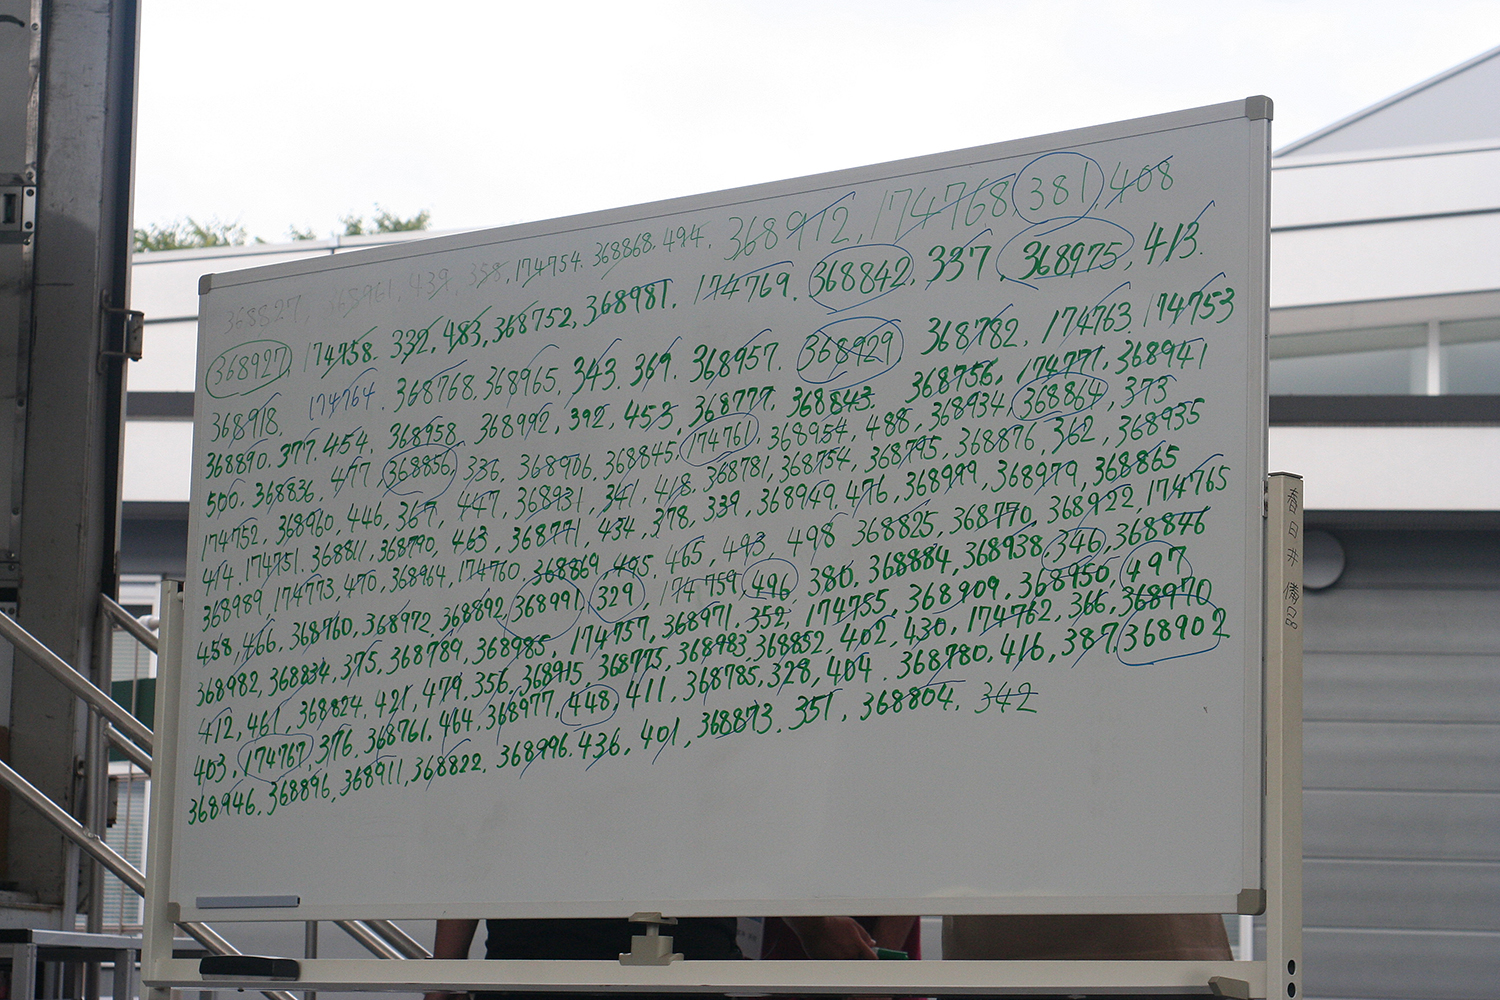 368827, 368961, 439, 358, 174754. 368868. 494. 368912, 174768, 381, 408
368927, 174758. 332, 483, 368752, 368981. 174769. 368842, 337, 368975, 413.
368918. 174764. 368768, 368965, 343. 369. 368957. 368929 368782, 174763. 174753
368890. 377. 454. 368958 368992, 392, 453, 368777. 368843. 368756, 174771, 368941
500. 368836, 477, 368856, 336, 368906, 368845, 174761, 368954, 488, 368934, 368864, 373
174752, 368960, 446, 367, 447, 368931 341, 418. 368781, 368754, 368795, 368876, 362, 368935
414. 174751. 368811, 368790, 463, 368771, 434, 378, 339, 368949, 476, 368999, 368979, 368865
368989, 174773, 470, 368964, 174760, 368869, 495. 465, 493, 498 368825, 368770, 368922, 174765
458, 466, 368760, 368972, 368892, 368991, 329, 174759, 496, 380, 368884, 368938, 346, 368846
368982, 368834, 375, 368789, 368985, 174757, 368971, 352, 174755, 368909, 368950, 497
412, 461, 368824, 421, 479, 356, 368915, 368775, 368983, 368852, 402, 430, 174762, 366, 368970
403, 174767, 376, 368761, 464, 368977, 448, 411, 368785, 328, 404. 368780, 416, 387, 368902
368946, 368896, 368911, 368822, 368996. 436, 401, 368873. 351, 368804, 342
春日井 備品